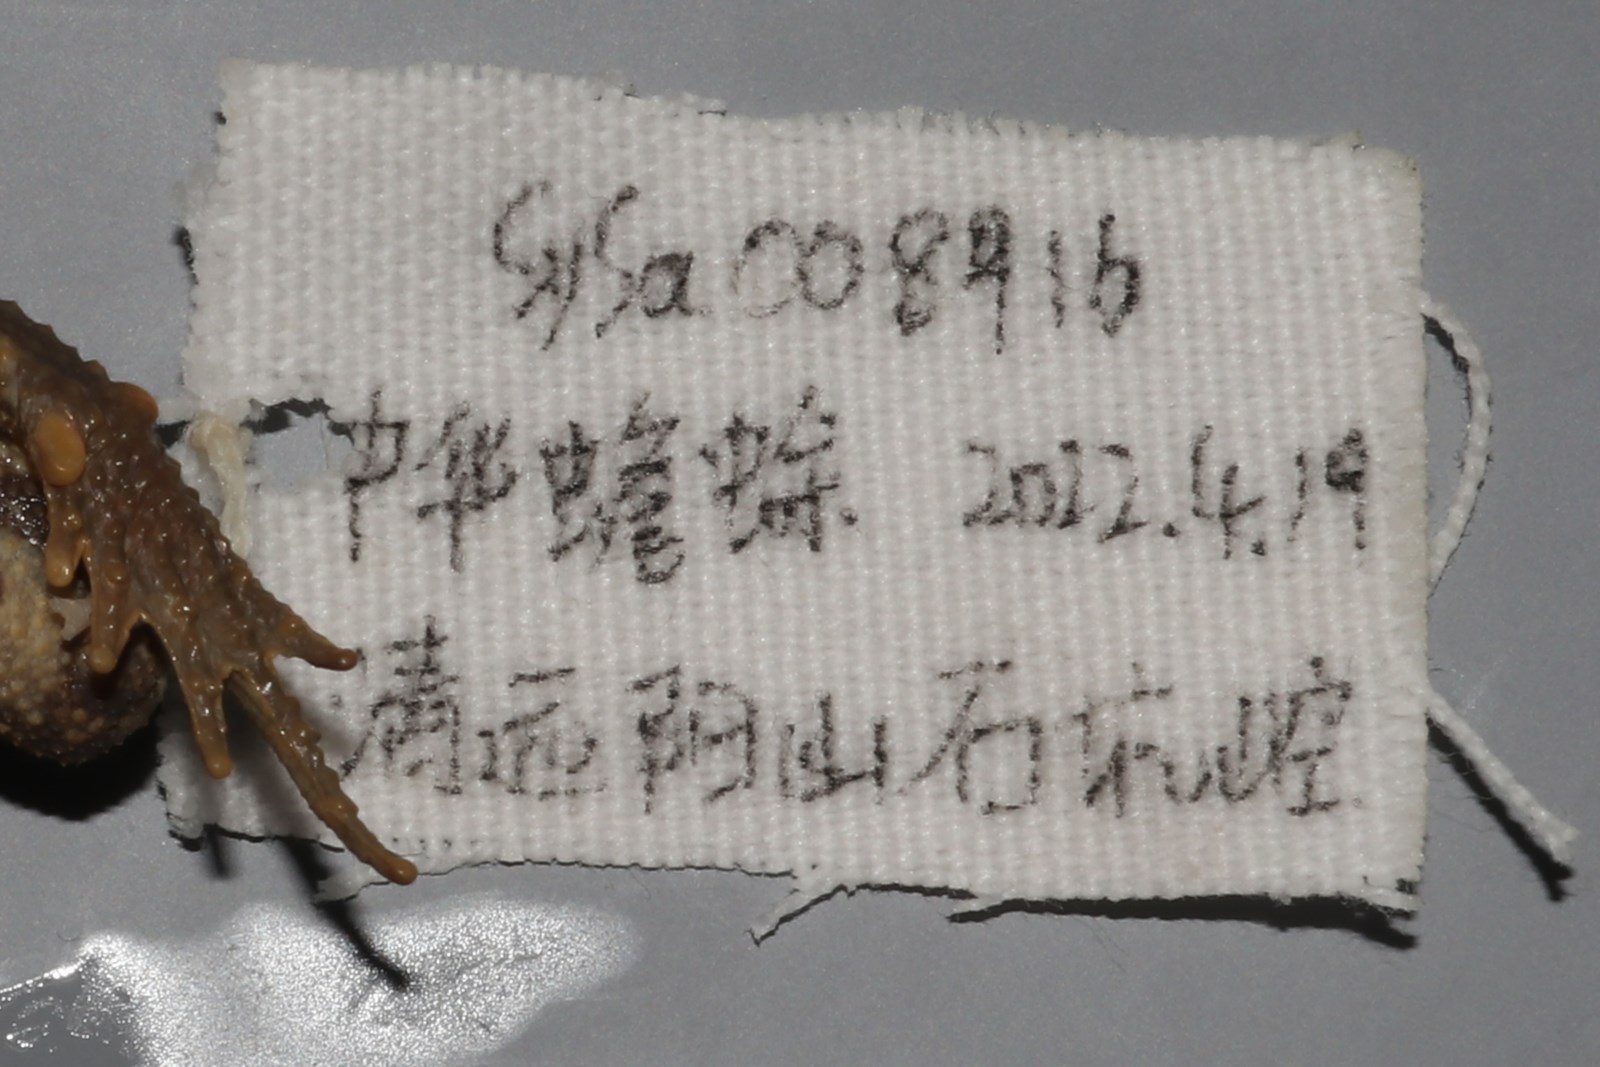 SYSa008916
中华蟾蜍. 2022.4.19
清远阳山石坑崆.